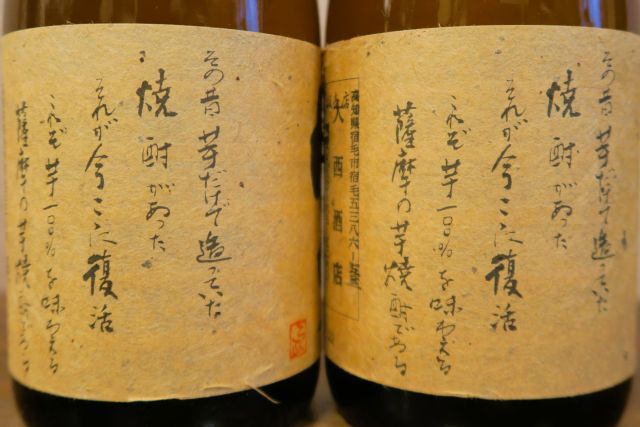 その昔芋だけで造っていた
焼酎があった
それが今ここに復活
これぞ芋一〇〇%を味わえる
薩摩の芋焼酎である
高知県宿毛市宿毛五三八六ー
大西酒店
店
その昔芋だけで造っていた
焼酎があった
それが今ここに復活
これぞ芋一〇〇%を味わえる
薩摩の芋焼酎である